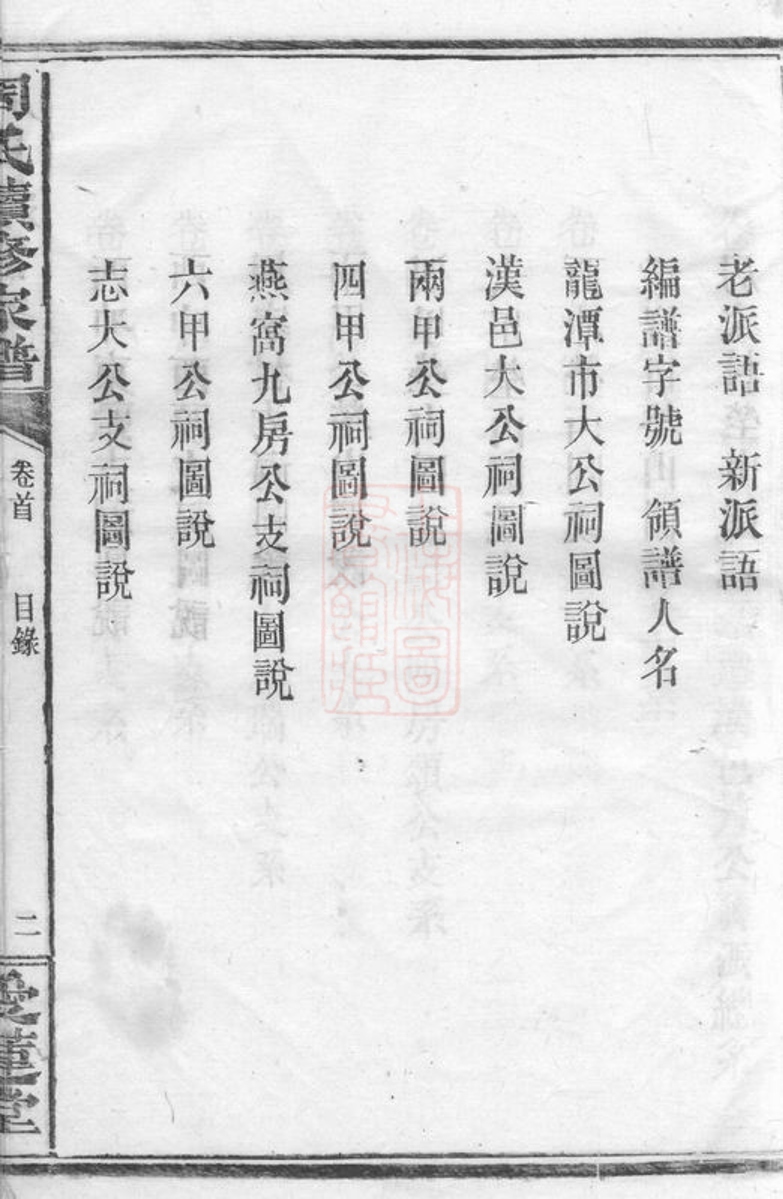 老派語　新派語
編譜字號　領譜人名
龍潭市大公祠圖說
漢邑大公祠圖說
兩甲公祠圖說
四甲公祠圖說
燕窩九房公支祠圖說
六甲公祠圖說
志大公支祠圖說
周氏續修家譜
卷首　目錄
二
愛蓮堂